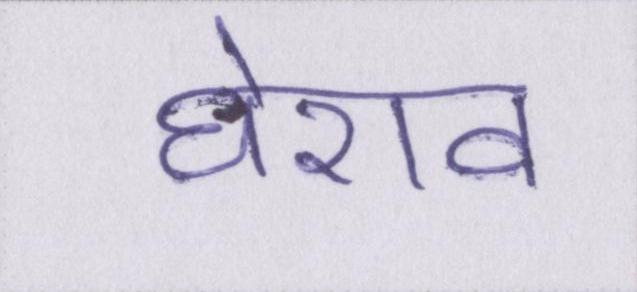 घेराव